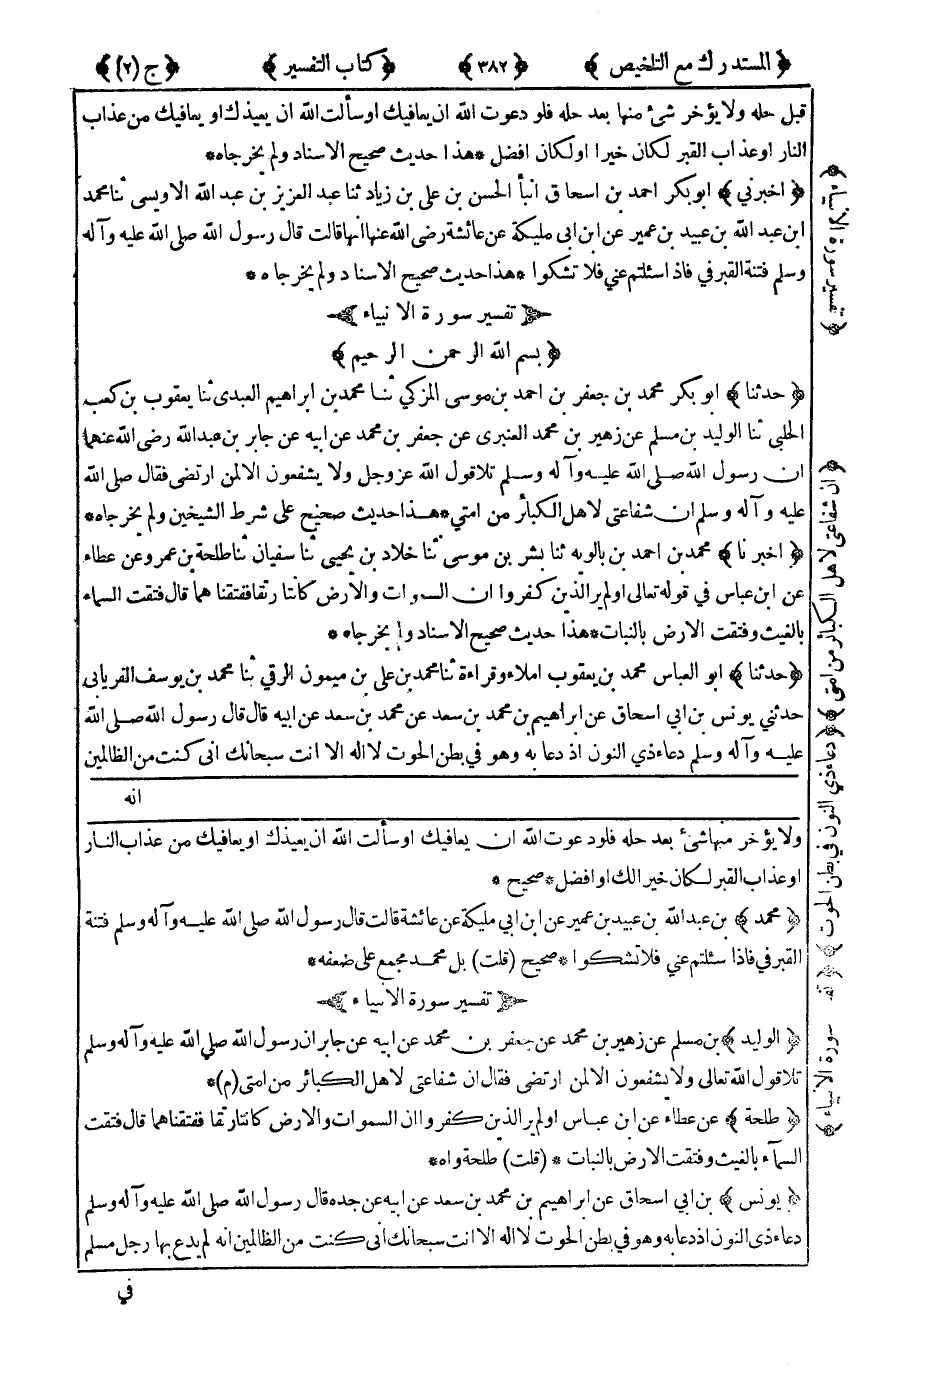 ﴿ المستدرك مع التلخيص ﴾ ﴿ ٣٨٢ ﴾ ﴿ كتاب التفسير ﴾ ﴿ ج (٢) ﴾
قبل حله ولا يؤخر شئ منها بعد حله فلو دعوت الله ان يعافيك او سألت الله ان يعيذك او يعافيك من عذاب
النار او عذاب القبر لكان خيرا او لكان افضل * هذا حديث صحيح الاسناد ولم يخرجاه *
﴿ اخبرني ﴾ ابوبكر احمد بن اسحاق انبأ الحسن بن على بن زياد ثنا عبد العزيز بن عبد الله الاويسى ثنا محمد
ابن عبد الله بن عبيد بن عمير عن ابن ابى مليكة عن عائشة رضى الله عنها انها قالت قال رسول الله صلى الله عليه وآله
وسلم فتنة القبر في فاذ اسئلتم عني فلا تشكوا * هذا حديث صحيح الاسناد ولم يخرجاه *
تفسير سورة الانبياء
﴿ بسم الله الرحمن الرحيم ﴾
﴿ حدثنا ﴾ ابو بكر محمد بن جعفر بن احمد بن موسى المزكي ثنا محمد بن ابراهيم العبدى ثنا يعقوب بن كعب
الحلبى ثنا الوليد بن مسلم عن زهير بن محمد العنبرى عن جعفر بن محمد عن ابيه عن جابر بن عبدالله رضى الله عنهما
ان رسول الله صلى الله عليه وآله وسلم تلا قول الله عز وجل ولا يشفعون الا لمن ارتضى فقال صلى الله
عليه وآله وسلم ان شفاعتى لاهل الكبائر من امتي * هذا حديث صحيح على شرط الشيخين ولم يخرجاه *
﴿ اخبرنا ﴾ محمد بن احمد بن بالويه ثنا بشر بن موسى ثنا خلاد بن يحيى ثنا سفيان ثنا طلحة بن عمرو عن عطاء
عن ابن عباس في قوله تعالى اولم ير الذين كفروا ان السموات والارض كانتا رتقا ففتقنا هما قال فتقت السماء
بالغيث وفتقت الارض بالنبات * هذا حديث صحيح الاسناد ولم يخرجاه *
﴿ حدثنا ﴾ ابو العباس محمد بن يعقوب املاء وقراءة ثنا محمد بن على بن ميمون الرقي ثنا محمد بن يوسف الفريابى
حدثني يونس بن ابي اسحاق عن ابراهيم بن محمد بن سعد عن محمد بن سعد عن ابيه قال قال رسول الله صلى الله
عليه وآله وسلم دعاء ذي النون اذ دعا به وهو في بطن الحوت لا اله الا انت سبحانك انى كنت من الظالمين
انه
ولا يؤخر منها شئ بعد حله فلو دعوت الله ان يعافيك او سألت الله ان يعيذك او يعافيك من عذاب النار
او عذاب القبر لكان خيرا لك او افضل * صحيح *
﴿ محمد ﴾ بن عبدالله بن عبيد بن عمير عن ابن ابي مليكة عن عائشة قالت قال رسول الله صلى الله عليه وآله وسلم فتنة
القبر في فاذا سئلتم عني فلا تشكوا * صحيح (قلت) بل محمد مجمع على ضعفه *
تفسير سورة الانبياء
﴿ الوليد ﴾ بن مسلم عن زهير بن محمد عن جعفر بن محمد عن ابيه عن جابر ان رسول الله صلى الله عليه وآله وسلم
تلا قول الله تعالى ولا يشفعون الا لمن ارتضى فقال ان شفاعتى لاهل الكبائر من امتى (م) *
﴿ طلحة ﴾ عن عطاء عن ابن عباس اولم ير الذين كفروا ان السموات والارض كانتا رتقا ففتقناهما قال فتقت
السمآء بالغيث وفتقت الارض بالنبات * (قلت) طلحة واه *
﴿ يونس ﴾ بن ابي اسحاق عن ابراهيم بن محمد بن سعد عن ابيه عن جده قال رسول الله صلى الله عليه وآله وسلم
دعاء ذى النون اذ دعا به وهو في بطن الحوت لا اله الا انت سبحانك انى كنت من الظالمين انه لم يدع بها رجل مسلم
في
﴿ تفسير سورة الانبياء ﴾
﴿ ان شفاعتى لاهل الكبائر من امتى ﴾
﴿ دعاء ذي النون في بطن الحوت ﴾
سورة الانبياء ﴾